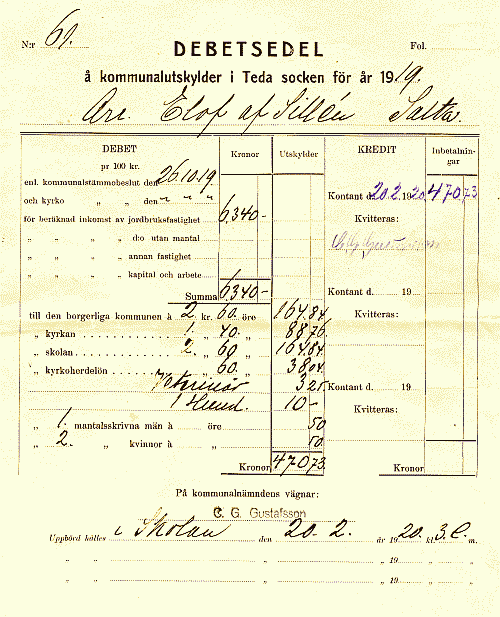 N:r 61.
Fol.
DEBETSEDEL
å kommunalutskylder i Teda socken för år 1919.
Arr. Elof af Sillén Salta
DEBET Kronor Utskylder KREDIT Inbetalningar
pr 100 kr.
enl. kommunalstämmobeslut den 26.10.19.
och kyrko „ „ den „ „ „
Kontant d. 20.2. 1920 470 73
för beräknad inkomst av jordbruksfastighet 6,340 -
Kvitteras:
„ „ „ „ d:o utan mantal
„ „ „ „ annan fastighet
„ „ „ „ kapital och arbete
Summa 6340 -
Kontant d. 19
till den borgerliga kommunen à 2 kr. 60 öre 164.84
Kvitteras:
„ kyrkan 1. „ 40. „ 88 76
„ skolan 2. „ 60 „ 164.84
„ kyrkoherdelön „ 60. „ 38 04
Veterinär 3 25
Kontant d. 19
1 Hund. 10 -
Kvitteras:
„ 1. mantalsskrivna män à öre 50
„ 2. „ kvinnor à „ 50.
Kronor 470 73.
Kronor
På kommunalnämndens vägnar:
C. G. Gustafsson
Uppbörd hålles i Skolan den 20. 2. år 1920. kl. 3. e. m.
„ „ „ 19
„ „ „ 19